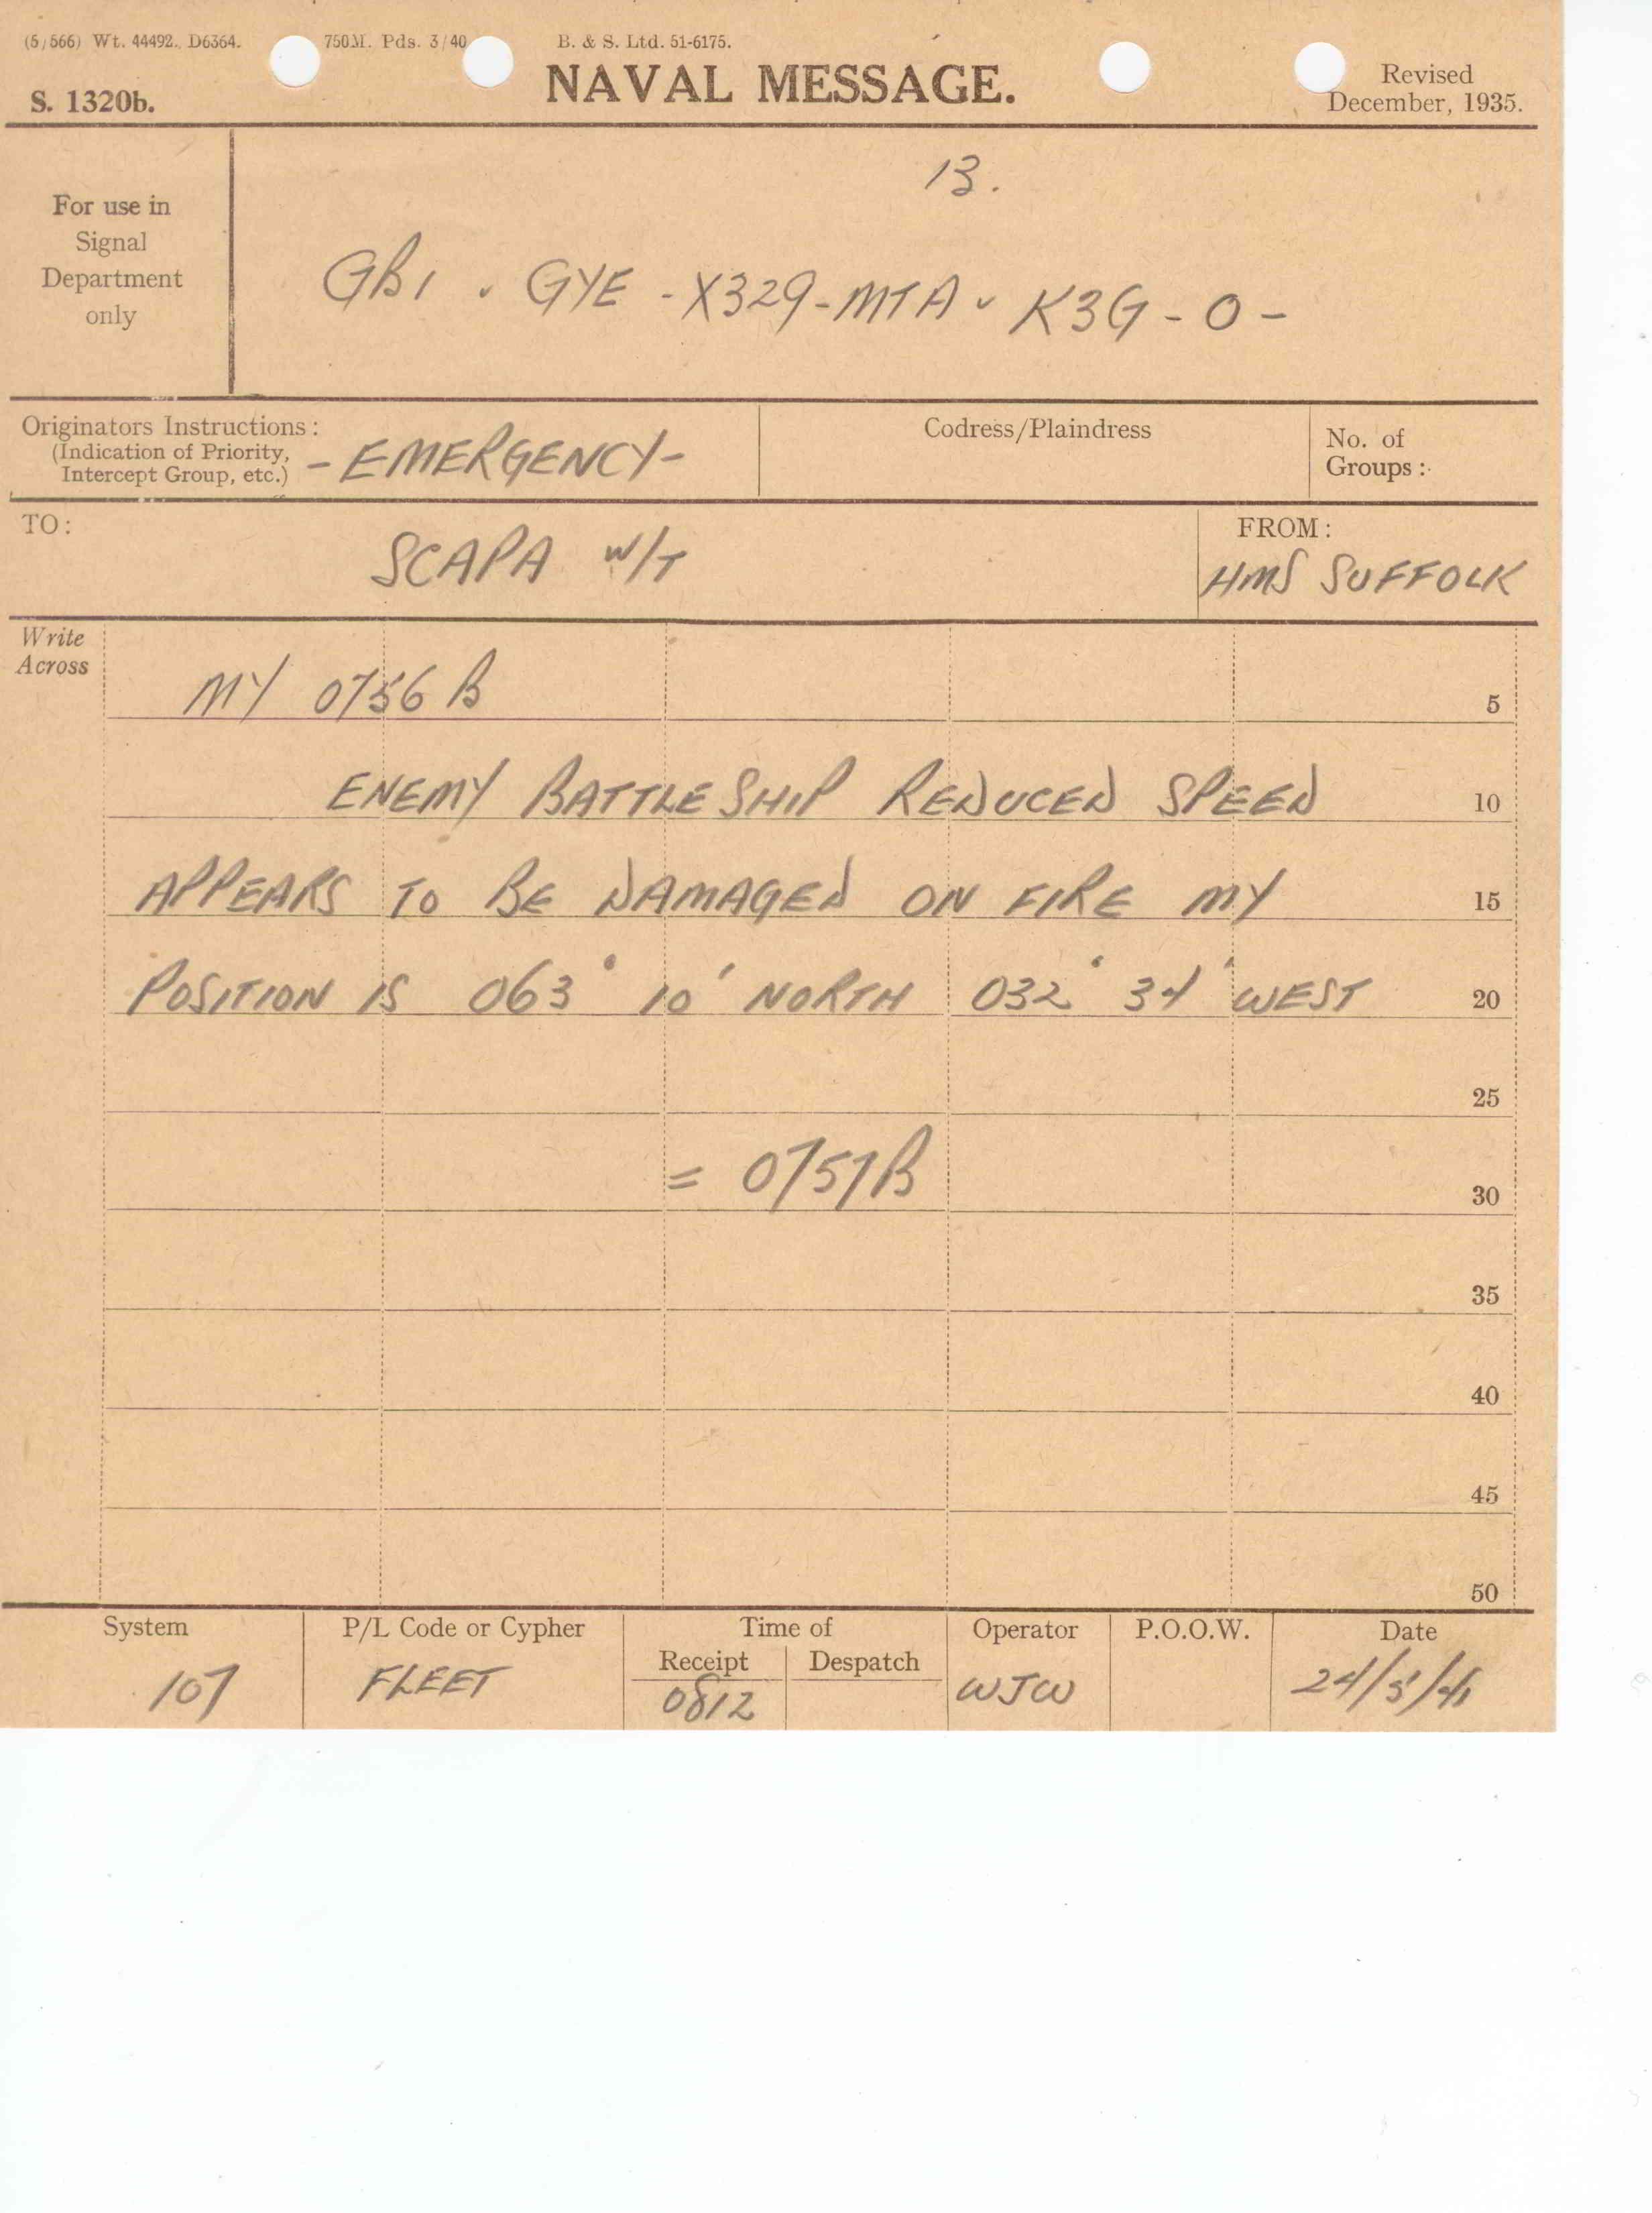 (5/566) Wt. 44492. D6364. 750M. Pds. 3/40 B. & S. Ltd. 51-6175.
S. 1320b.
NAVAL MESSAGE.
Revised
December, 1935.
For use in
Signal
Department
only
13.
GB1 v GYE - X329 - MTA v K3G - O -
Originators Instructions:
(Indication of Priority,
Intercept Group, etc.)
- EMERGENCY -
Codress/Plaindress
No. of
Groups:
TO:
SCAPA W/T
FROM:
HMS SUFFOLK
Write
Across
MY 0756 B
5
ENEMY BATTLESHIP REDUCED SPEED
10
APPEARS TO BE DAMAGED ON FIRE MY
15
POSITION IS 063° 10' NORTH 032° 34' WEST
20
25
= 0757B
30
35
40
45
50
System
107
P/L Code or Cypher
FLEET
Time of
Receipt
0812
Despatch
Operator
WJW
P.O.O.W.
Date
24/5/41